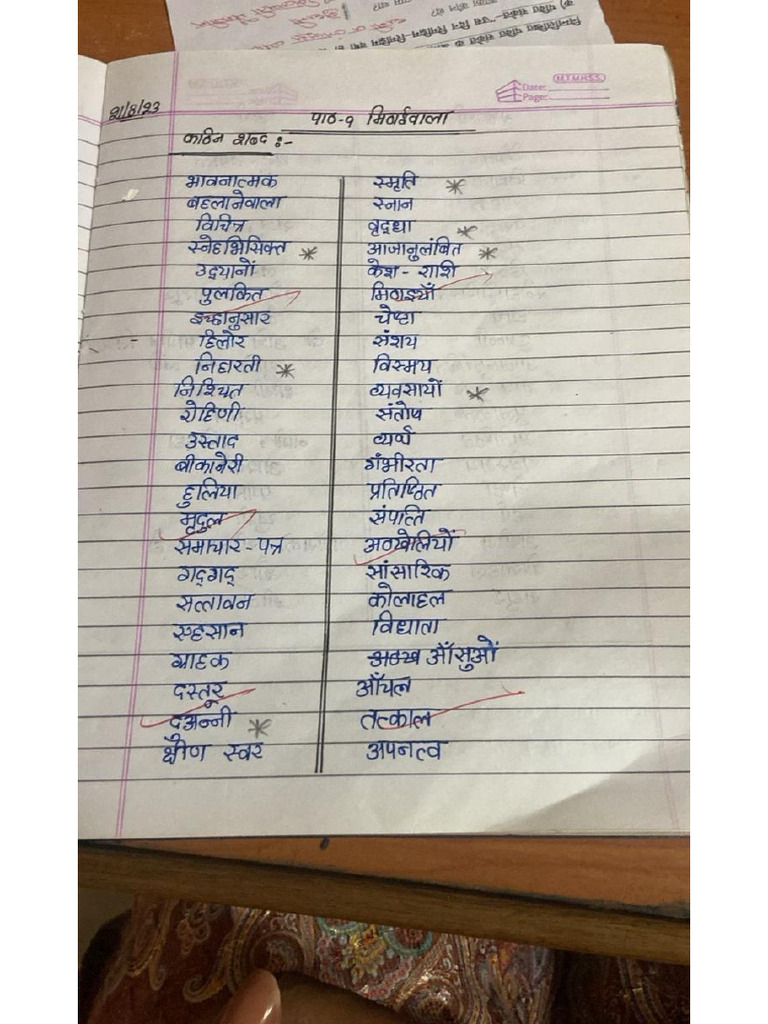 MTMHSS
Date:
Page:
21/8/23
पाठ-१ मिठाईवाला
कठिन शब्द :-
भावनात्मक
बहलानेवाला
विचित्र
स्नेहभिसिक्त *
उद्यानों
पुलकित
इच्छानुसार
हिलोर
निहारती *
निश्चित
रोहिणी
उस्ताद
बीकानेरी
हुलिया
मृदुल
समाचार-पत्र
गद्‌गद्
सत्तावन
एहसान
ग्राहक
दस्तूर
दुअन्नी *
क्षीण स्वर
स्मृति *
स्नान
वृद्‌धा *
आजानुलंबित *
केश - राशि
मिठाइयाँ
चेष्टा
संशय
विस्मय
व्यवसायों *
संतोष
व्यर्थ
गंभीरता
प्रतिष्ठित
संपत्ति
अठखेलियों
सांसारिक
कोलाहल
विधाता
आँसुओं
आँचल
तत्काल
अपनत्व